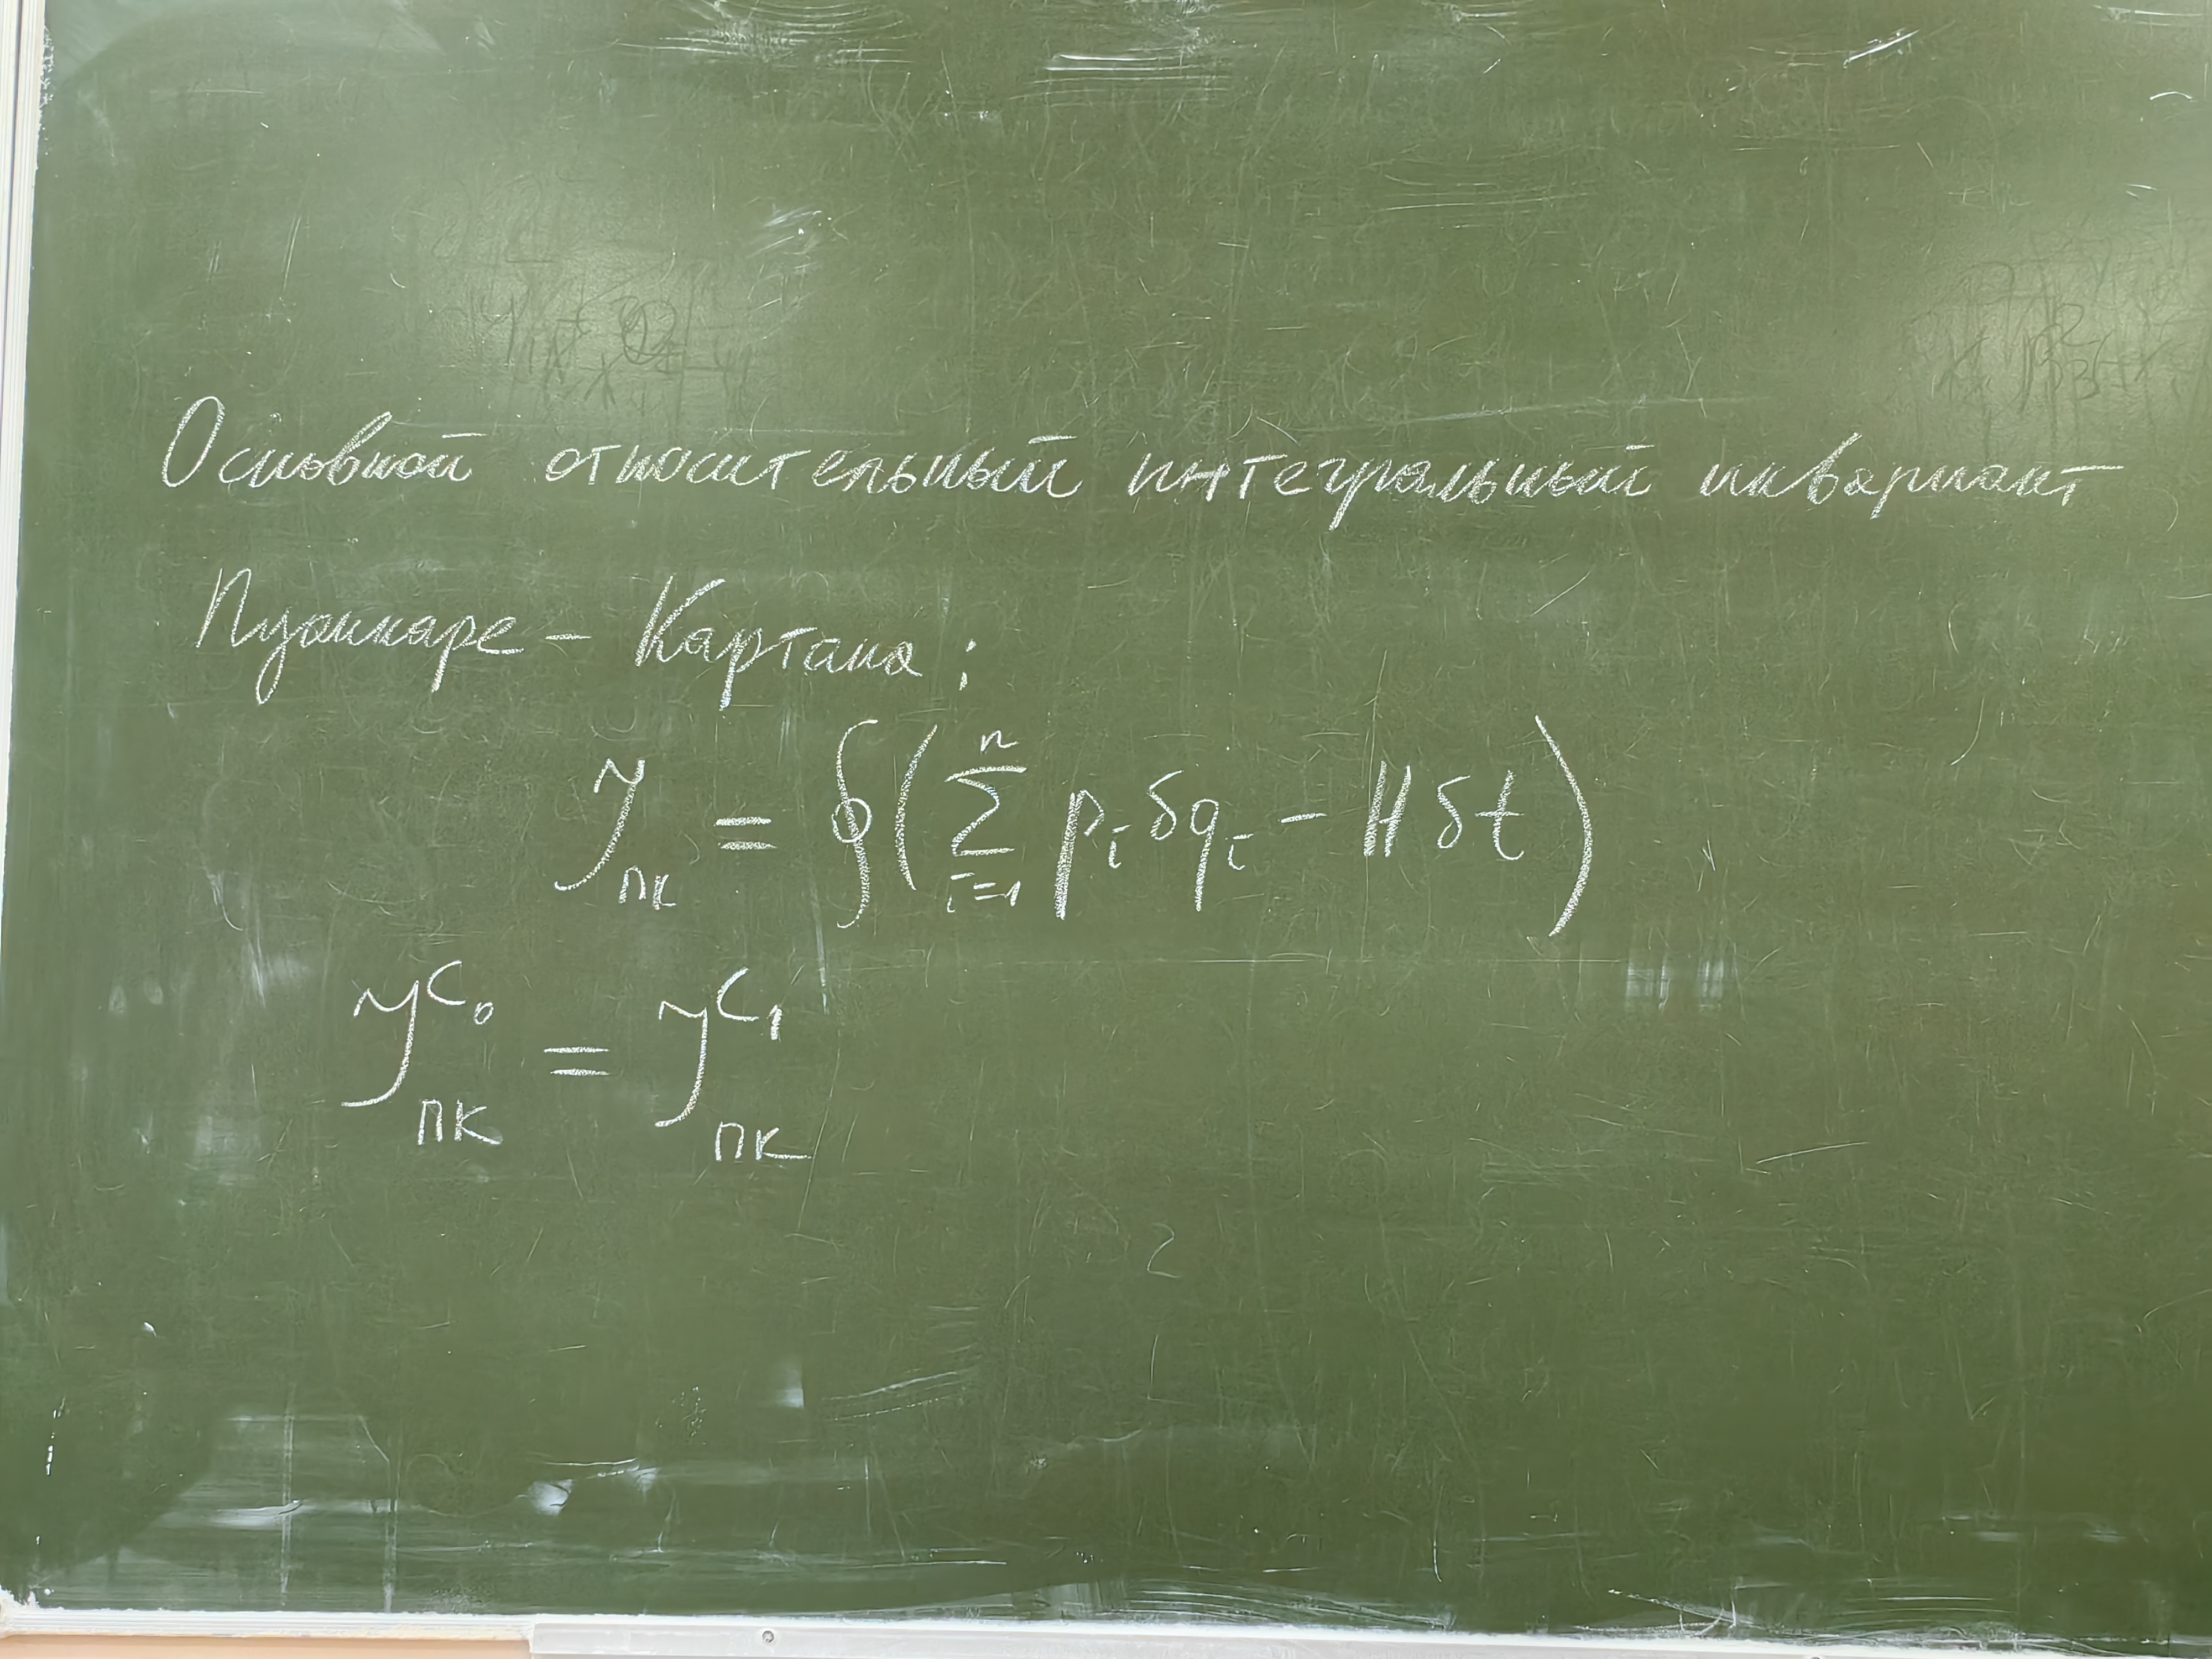 Основной относительный интегральный инвариант
Пуанкаре – Картана:
J_ПК = ∮(∑_{i=1}^{n} p_i δq_i − H δt)
J_ПК^{C_0} = J_ПК^{C_1}